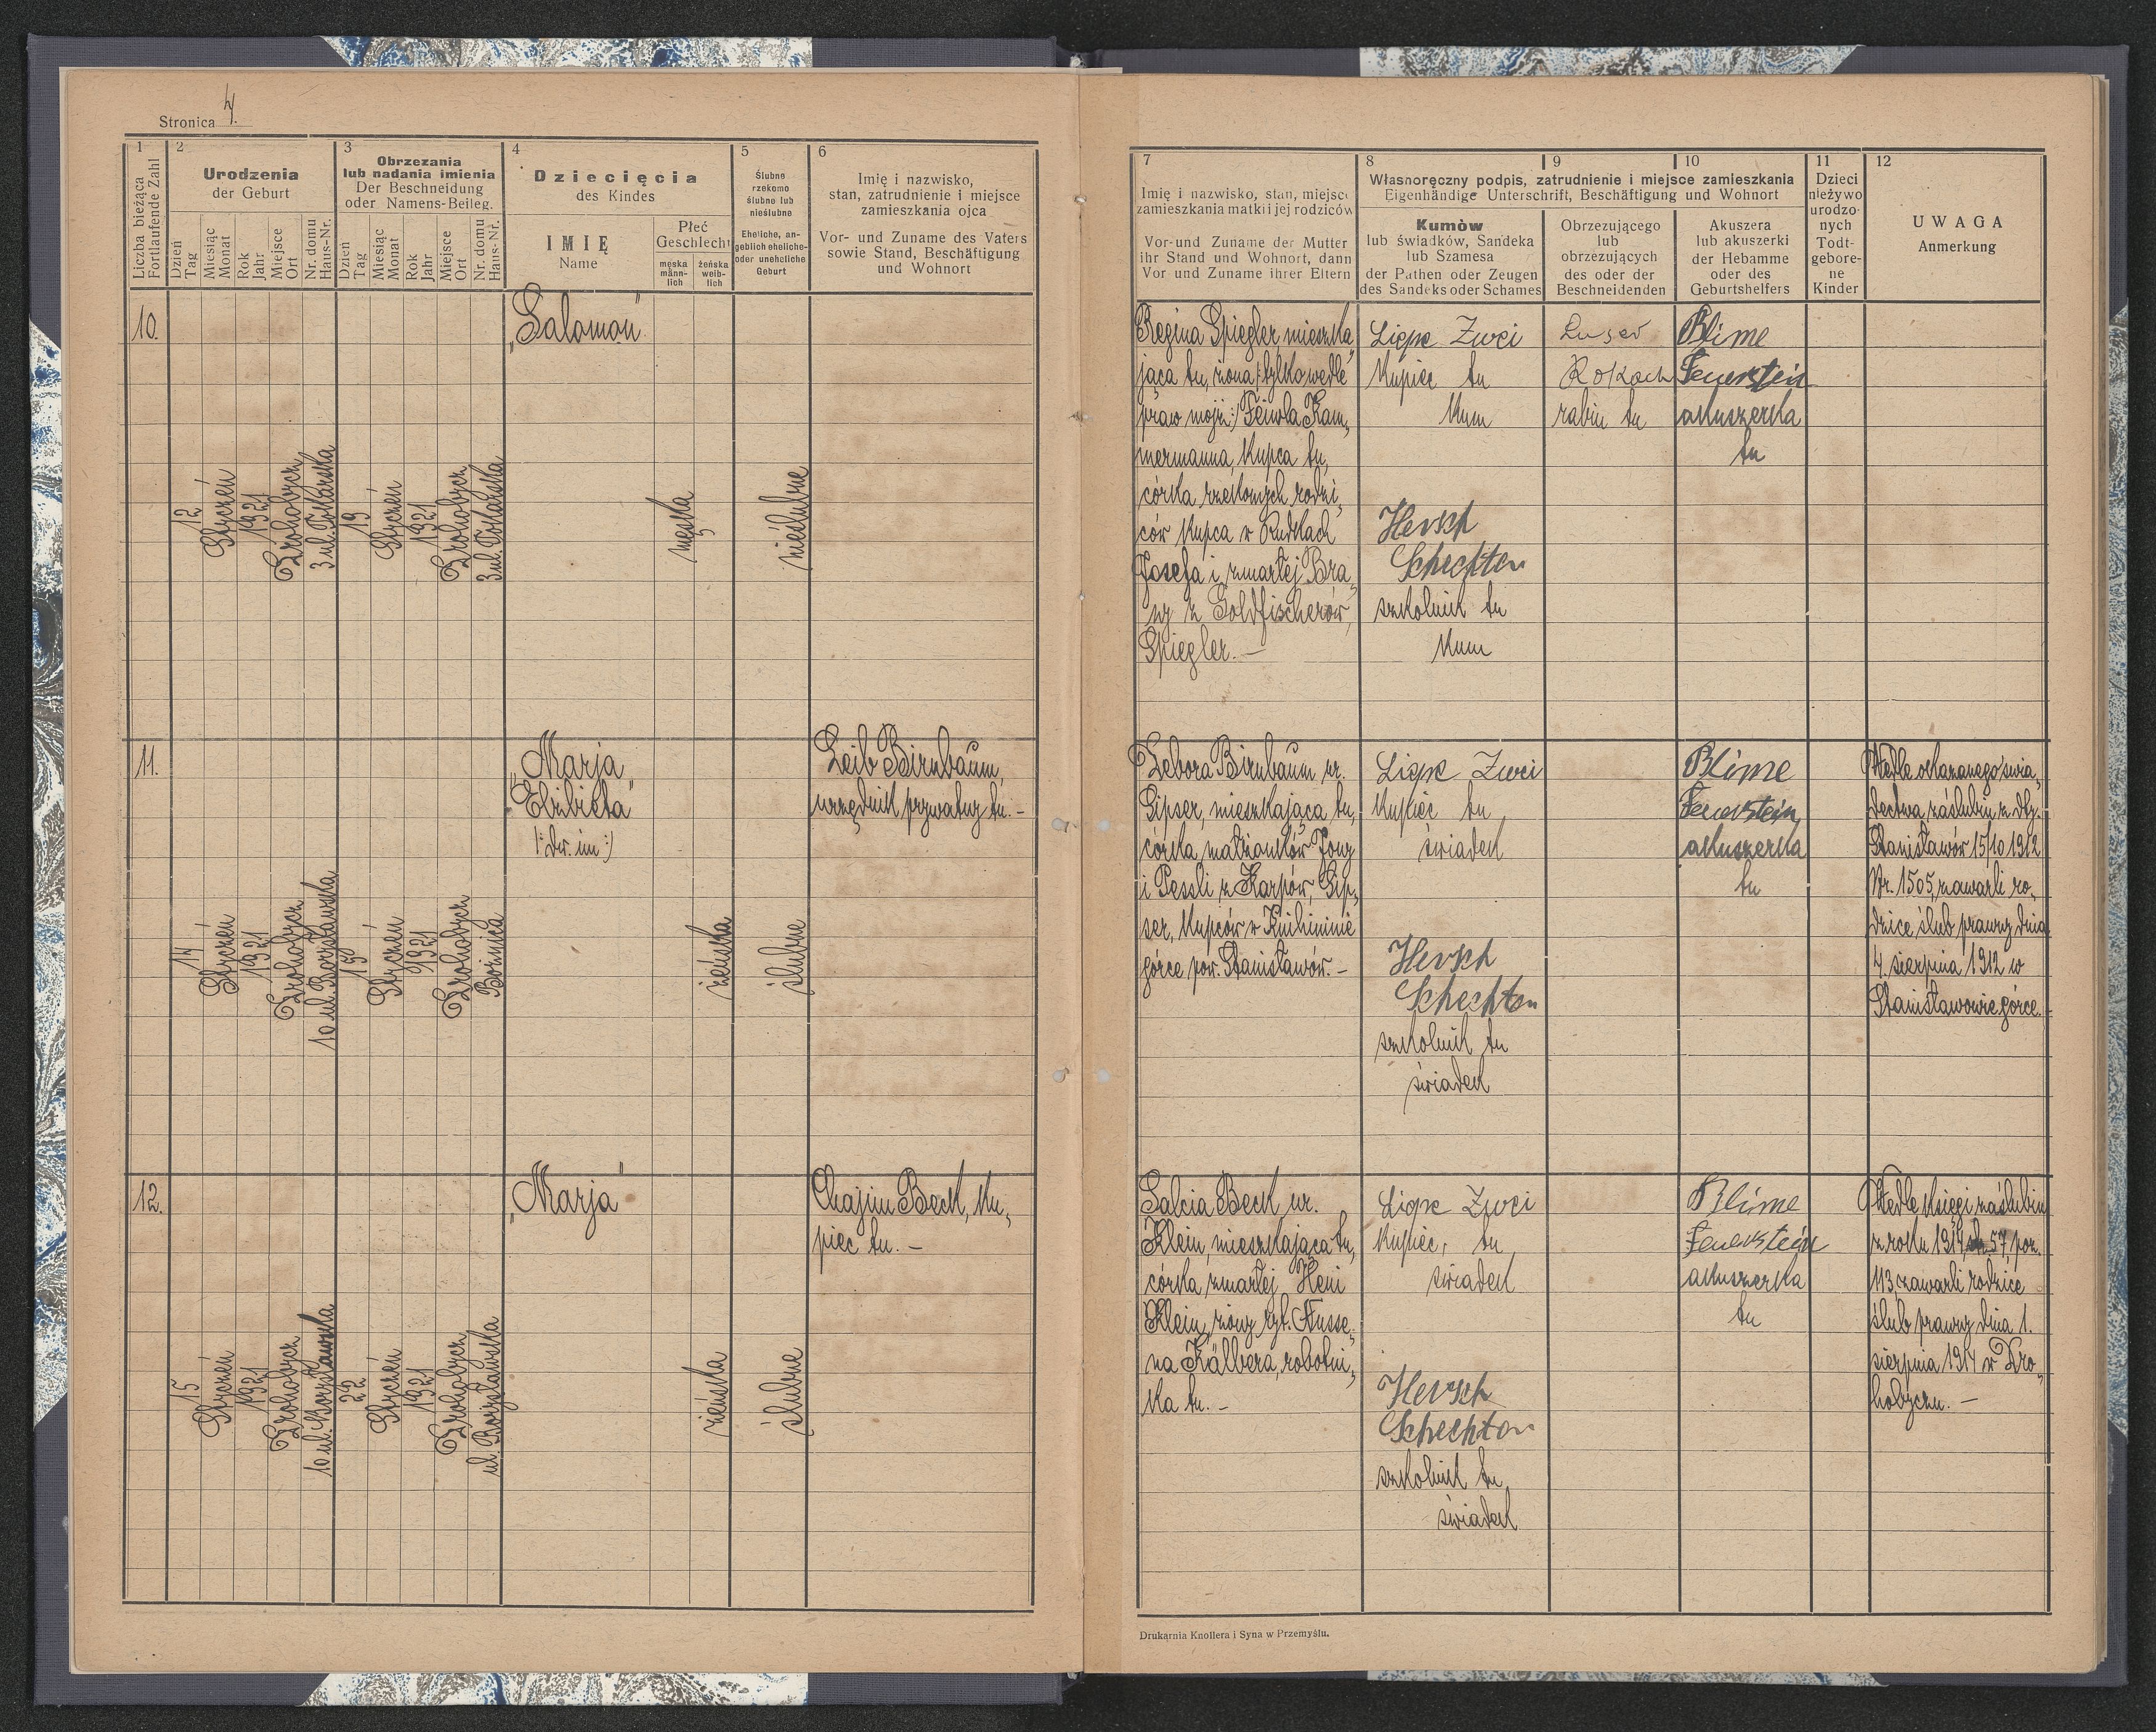 Stronica 4.
1
Liczba bieżąca
Fortlaufende Zahl
2
Urodzenia
der Geburt
Dzień
Tag
Miesiąc
Monat
Rok
Jahr
Miejsce
Ort
Nr. domu
Haus-Nr.
3
Obrzezania
lub nadania imienia
Der Beschneidung
oder Namens-Beileg.
Dzień
Tag
Miesiąc
Monat
Rok
Jahr
Miejsce
Ort
Nr. domu
Haus-Nr.
4
Dziecięcia
des Kindes
IMIĘ
Name
Płeć
Geschlecht
męska
männ-
lich
żeńska
weib-
lich
5
Ślubne
rzekomo
ślubne lub
nieślubne
Eheliche, an-
geblich eheliche-
oder uneheliche
Geburt
6
Imię i nazwisko,
stan, zatrudnienie i miejsce
zamieszkania ojca
Vor- und Zuname des Vaters
sowie Stand, Beschäftigung
und Wohnort
7
Imię i nazwisko, stan, miejsce
zamieszkania matki i jej rodziców
Vor-und Zuname der Mutter
ihr Stand und Wohnort, dann
Vor und Zuname ihrer Eltern
8
9
10
Własnoręczny podpis, zatrudnienie i miejsce zamieszkania
Eigenhändige Unterschrift, Beschäftigung und Wohnort
Kumòw
lub świadków, Sandeka
lub Szamesa
der Pathen oder Zeugen
des Sandeks oder Schames
Obrzezującego
lub
obrzezujących
des oder der
Beschneidenden
Akuszera
lub akuszerki
der Hebamme
oder des
Geburtshelfers
11
Dzieci
nieżywo
urodzo-
nych
Todt-
gebore-
ne
Kinder
12
UWAGA
Anmerkung
10.
12
Styczeń
1921
Drohobycz
3 ul.
19
Styczeń
1921
Drohobycz
3 ul.
„Salomon"
męska
nieślubne
Regina Spiegler mieszka„
jąca tu, żona /:tylko wedle
praw mojż:/ Feiwla Kam„
mermanna, kupca tu,
córka rzekomych rodzi„
ców kupca w Rudkach
Josefa i zmarłej Bra„
ny z Goldfischerów,
Spiegler. —
Lippe Zwei
kupiec tu
kum
Hersch
Schechter
szkolnik tu
kum
Rokach
rabin tu
Blime
Feuerstein
akuszerka
tu
11.
14
Styczeń
1921
Drohobycz
10 ul. Borysławska
15
Styczeń
1921
Drohobycz
Bożnica
„Marja
Elżbieta"
/:dw. im:/
żeńska
ślubne
Leib Birnbaum,
urzędnik prywatny tu. -
Debora Birnbaum ur.
Gipser, mieszkająca tu,
córka małżonków Jony
i Pessli z Karpów, Gip„
ser, kupców w Knihininie
górce pow. Stanisławów. -
Lippe Zwei
kupiec tu,
świadek
Hersch
Schechter
szkolnik tu
świadek
Blime
Feuerstein,
akuszerka
tu
Wedle okazanego świa„
dectwa zaślubin z dty.
Stanisławów 15/10 1912
Nr. 1505, zawarli ro„
dzice ślub prawny dnia
4. sierpnia 1912 w
Stanisławowie górce.
12.
15
Styczeń
1921
Drohobycz
10 ul. Borysławska
22
Styczeń
1921
Drohobycz
ul. Borysławska
„Marja"
żeńska
ślubne
Chajim Beck, ku„
piec tu. —
Salcia Beck ur.
Klein, mieszkająca tu,
córka zmarłej Heni
Klein, żony ryt. Nusse„
na Kälbera, robotni„
ka tu. -
Lippe Zwei
kupiec, tu,
świadek
Hersch
Schechter
szkolnik tu,
świadek
Blime
Feuerstein
akuszerka
tu
Wedle księgi zaślubin
z roku 1914 57, poz.
113 zawarli rodzice
ślub prawny dnia 1.
sierpnia 1914 w Dro„
hobyczu. —
Drukarnia Knollera i Syna w Przemyślu.